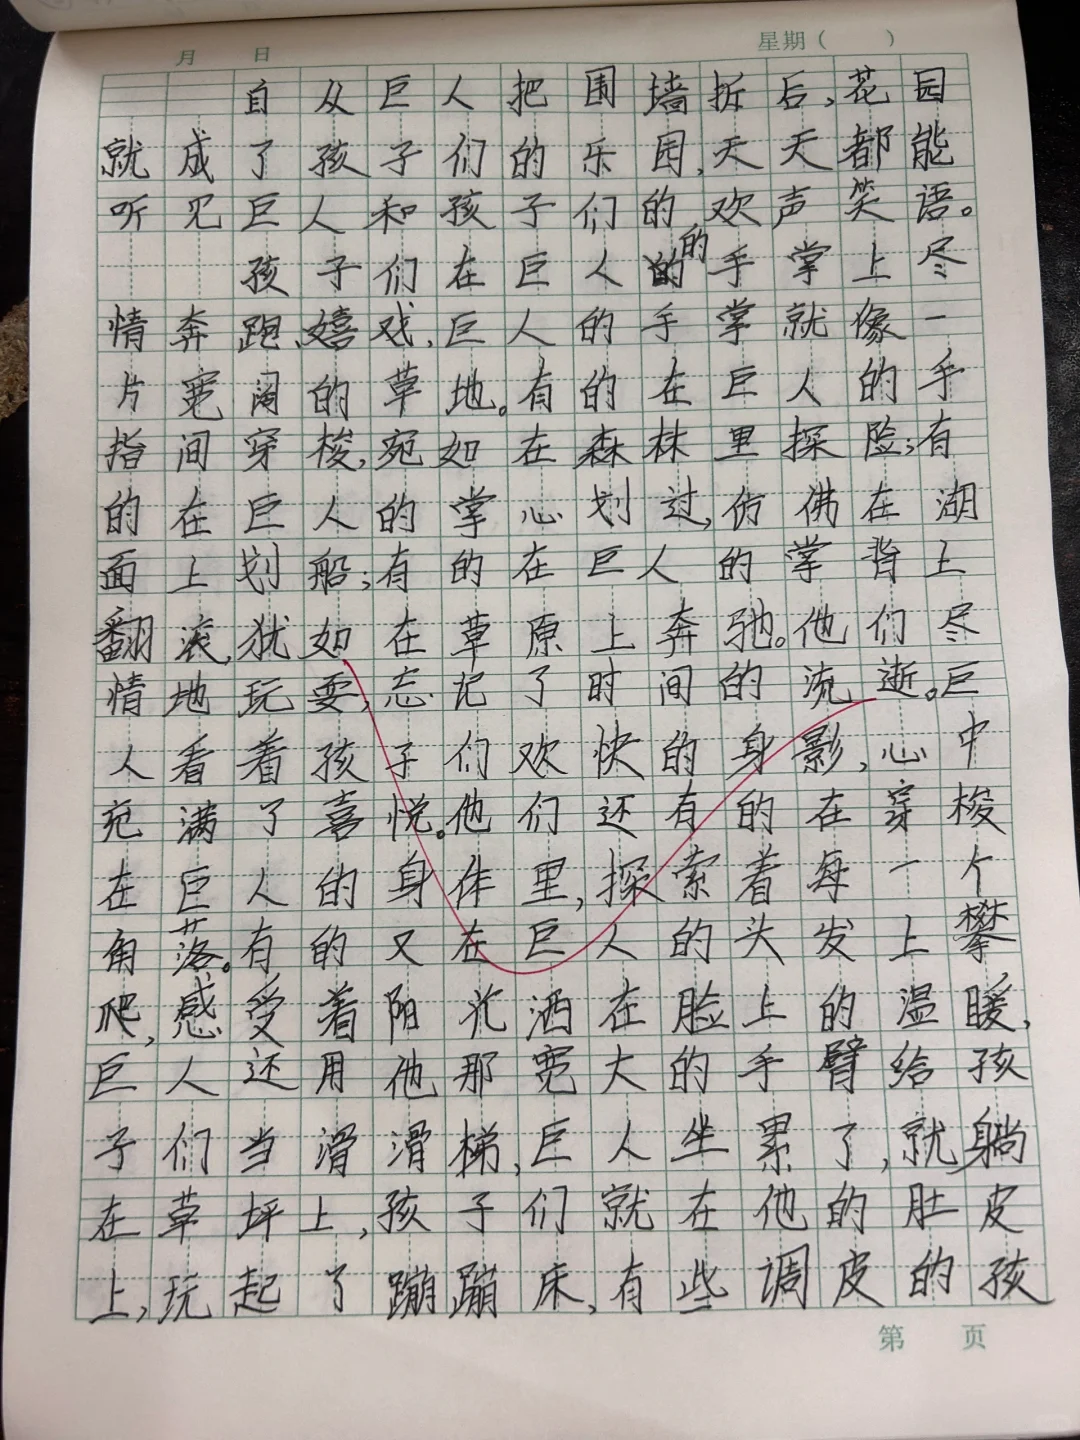 月 日 星期（ ）
自从巨人把围墙拆后,花园
就成了孩子们的乐园,天天都能
听见巨人和孩子们的欢声笑语。
孩子们在巨人的手掌上尽
情奔跑、嬉戏,巨人的手掌就像一
片宽阔的草地。有的在巨人的手
指间穿梭,宛如在森林里探险;有
的在巨人的掌心划过,仿佛在湖
面上划船;有的在巨人的掌背上
翻滚,犹如在草原上奔驰。他们尽
情地玩耍,忘记了时间的流逝。巨
人看着孩子们欢快的身影,心中
充满了喜悦。他们还有的在穿梭
在巨人的身体里,探索着每一个
角落。有的又在巨人的头发上攀
爬,感受着阳光洒在脸上的温暖,
巨人还用他那宽大的手臂给孩
子们当滑滑梯,巨人坐累了,就躺
在草坪上,孩子们就在他的肚皮
上,玩起了蹦蹦床,有些调皮的孩
第 页